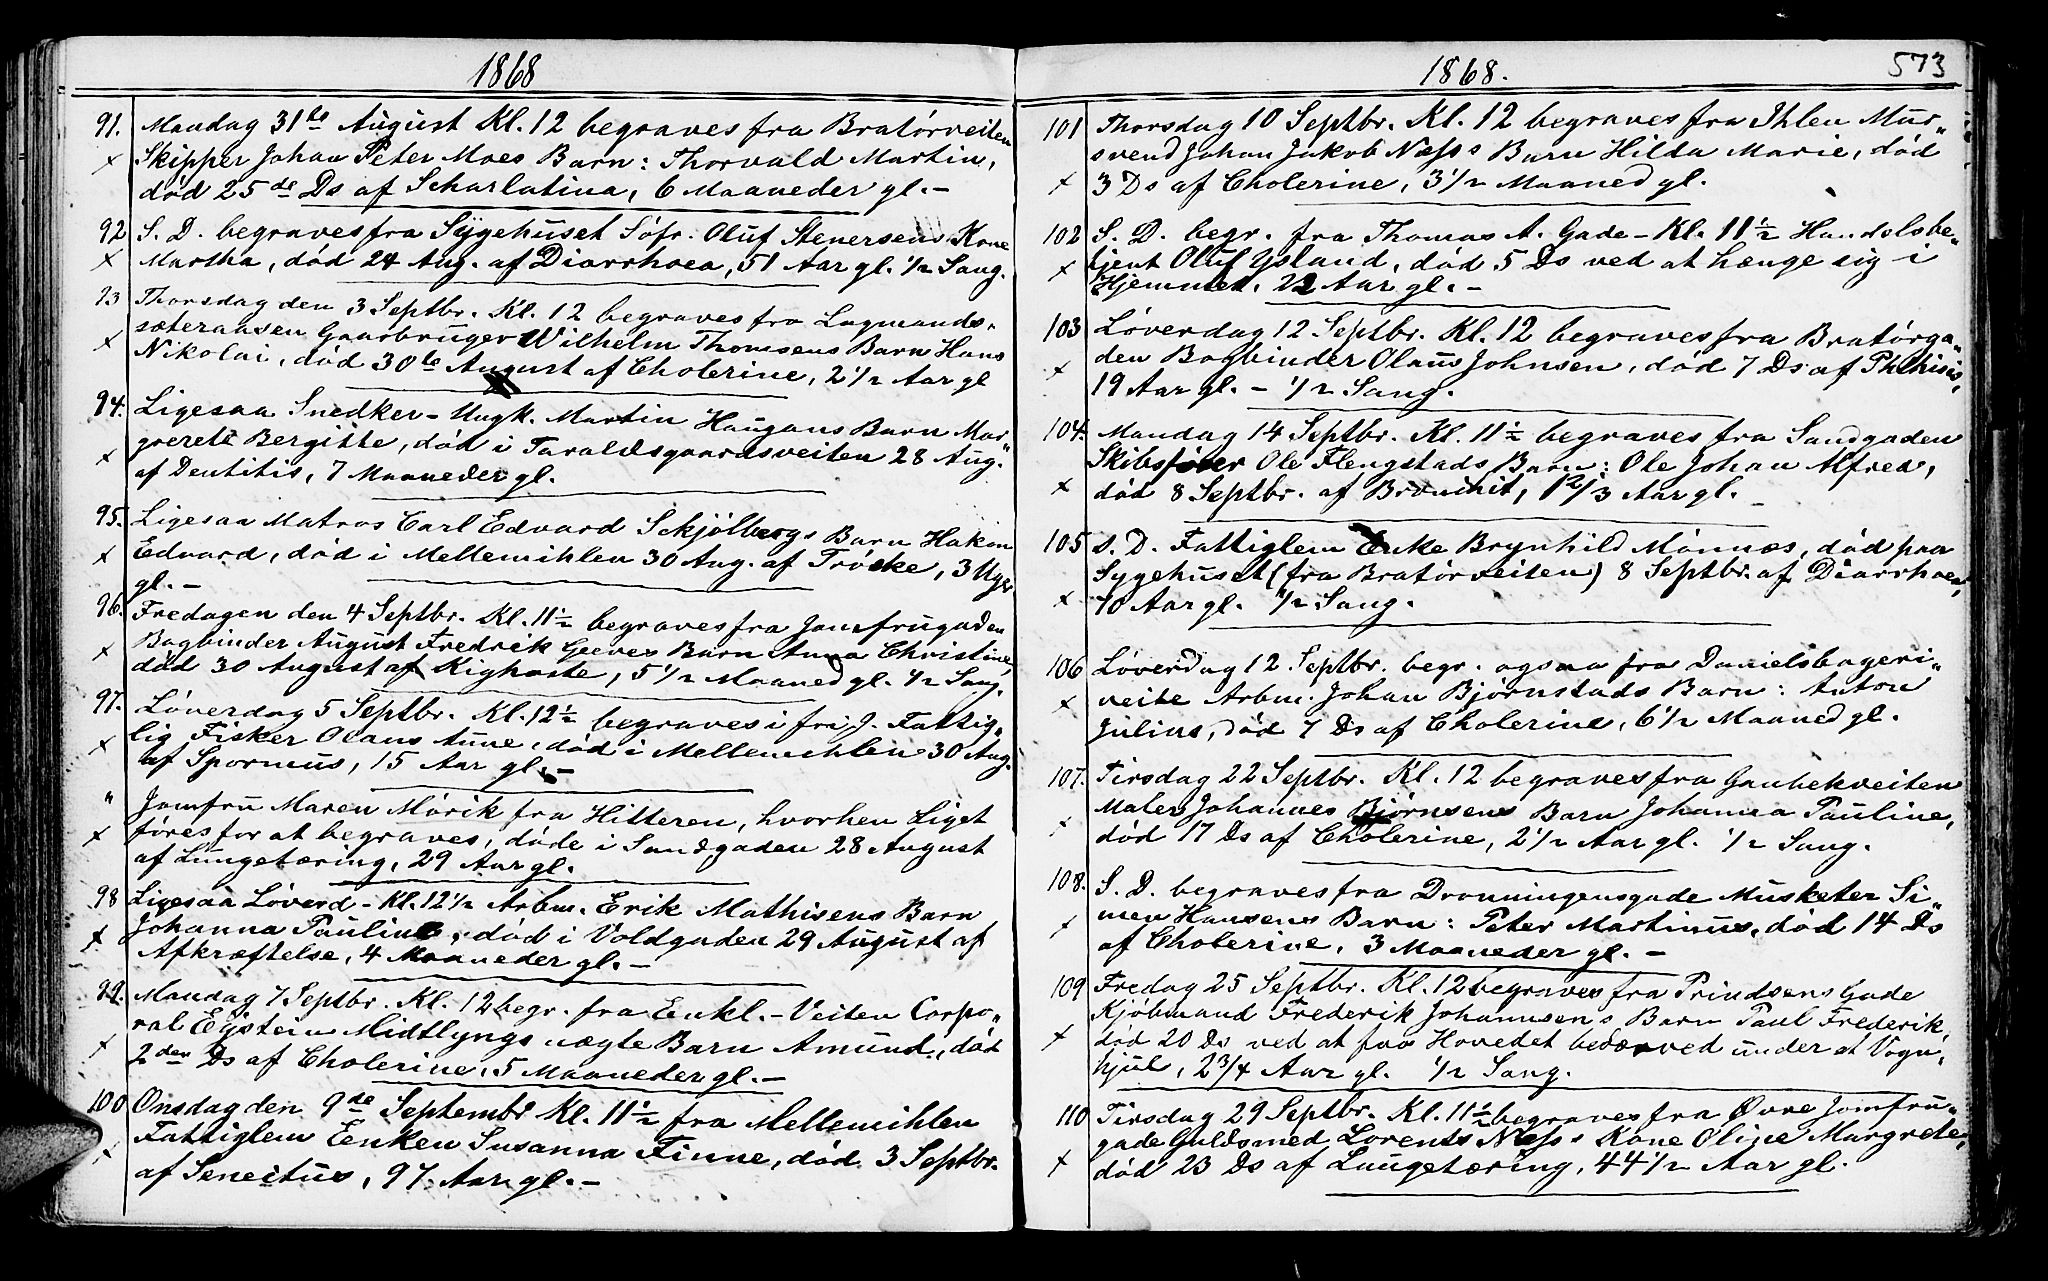 1868
91. Mandag 31te August Kl. 12 begraves fra Bratørveiten
Skipper Johan Peter Moes Barn: Thorvald Martin,
død 25de Ds af Scharlatina, 6 Maaneder gl. –
92 S. D. begraves fra Sygehuset Söfr. Oluf Stenersens Kone
Martha, død 24 Aug. af Diarrhoea, 51 Aar gl. 1/2 Sang.
93 Thorsdag den 3 Septbr. Kl. 12 begraves fra Lagmands-
sæteraasen Gaarbruger Wilhelm Thomsens Barn Hans
Nikolai, død 30te August af Cholerine, 2 1/2 Aar gl
94. Ligesaa Snedker – Ungk. Martin Haugans Barn Mar-
grerete Bergitte, död i Taraldsgaardsveiten 28 Aug.
af Dentitis, 7 Maaneder gl.
95. Ligesaa Matros Carl Edvard Schjölbergs Barn Hakon
Edvard, død i Mellemihlen 30 Aug. af Tröske, 3 Uger
gl. –
96. Fredagen den 4 Septbr. Kl. 11 1/2 begraves fra Jomfrugaden
Bogbinder August Fredrik Geeves Barn Anna Christine,
död 30 August af Kighoste, 5 1/2 Maaned gl. 1/2 Sang.
97. Löverdag 5 Septbr. Kl. 12 1/2 begraves i fri J. Fattig-
lig Fisker Olaus Aune, död i Mellemihlen 30 Aug.
af 15 Aar gl. –
" Jomfru Maren Mörik fra Hitteren, hvorhen Liget
föres for at begraves, döde i Sandgaden 28 August
af Lungetæring, 29 Aar gl.
98 Ligesaa Løverd – Kl. 12 1/2 Arbm. Erik Mathisens Barn
Johanna Pauline, død i Voldgaden 29 August af
Afkræftelse, 4 Maaneder gl. –
99. Mandag 7 Septbr. Kl. 12 begr. fra Enkl. – Veiten Corpo-
ral Eystein Midtlyngs uægte Barn Amund, död
2den Ds af Cholerine, 5 Maaneder gl. –
100 Onsdag den 9de Septembr Kl. 11 1/2 fra Mellemihlen
Fattiglem Eenken Susanna Finne, död 3 Septbr.
af Senectus, 97 Aar gl. –
1868.
573
101 Thorsdag 10 Septbr. Kl. 12 begraves fra Ihlen Mur-
svend Johan Jakob Næss's Barn Hilda Marie, död
3 Ds af Cholerine, 3 1/2 Maaned gl.
102 S. D. begr. fra Thomas A. Gade – Kl. 11 1/2 Handelsbe-
tjent Oluf Ysland, död 5 Ds ved at hænge sig i
Hjemmet. 22 Aar gl. –
103 Løverdag 12 Septbr. Kl. 12 begraves fra Bratørga-
den Bogbinder Olaus Johnsen, død 7 Ds af Phthisis,
19 Aar gl. – 1/2 Sang.
104. Mandag 14 Septbr. Kl. 11 1/2 begraves fra Sandgaden
Skibsfører Ole Flengstads Barn: Ole Johan Alfred,
død 8 Septbr. af Bronchit, 1 2/3 Aar gl.
105 S. D. Fattiglem Enke Brynhild Mónnæs, död paa
Sygehuset (fra Bratörveiten) 8 Septbr. af Diarrhoea,
70 Aar gl. 1/2 Sang.
106 Løverdag 12 Septbr. begr. ogsaa fra Danielsbageri-
veite Arbm. Johan Bjørnstads Barn: Anton
Julius, död 7 Ds af Cholerine, 6 1/2 Maaned gl.
107. Tirsdag 22 Septbr. Kl. 12 begraves fra Gaubekveiten
Maler Johannes Bjørnsens Barn Johanna Pauline,
död 17 Ds af Cholerine, 2 1/2 Aar gl. 1/2 Sang.
108. S. D. begraves fra Dronningensgade Musketer Si-
men Hansens Barn: Peter Martinus, död 14 Ds
af Cholerine, 3 Maaneder gl. –
109 Fredag 25 Septbr. Kl. 12 begraves fra Prindsens Gade
Kjöbmand Frederik Johannsens Barn Paul Frederik,
död 20 Ds ved at faa Hovedet bedærved under et Vogn-
hjul, 2 3/4 Aar gl. 1/2 Sang.
110 Tirsdag 29 Septbr. Kl. 11 1/2 begraves fra Øvre Jomfru-
gade Guldsmed Lorents Næss's Kone Oline Margrete,
død 23 Ds af Lungetæring, 44 1/2 Aar gl.